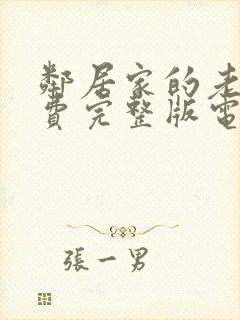 鄰居家的老
費完整版電
張一男